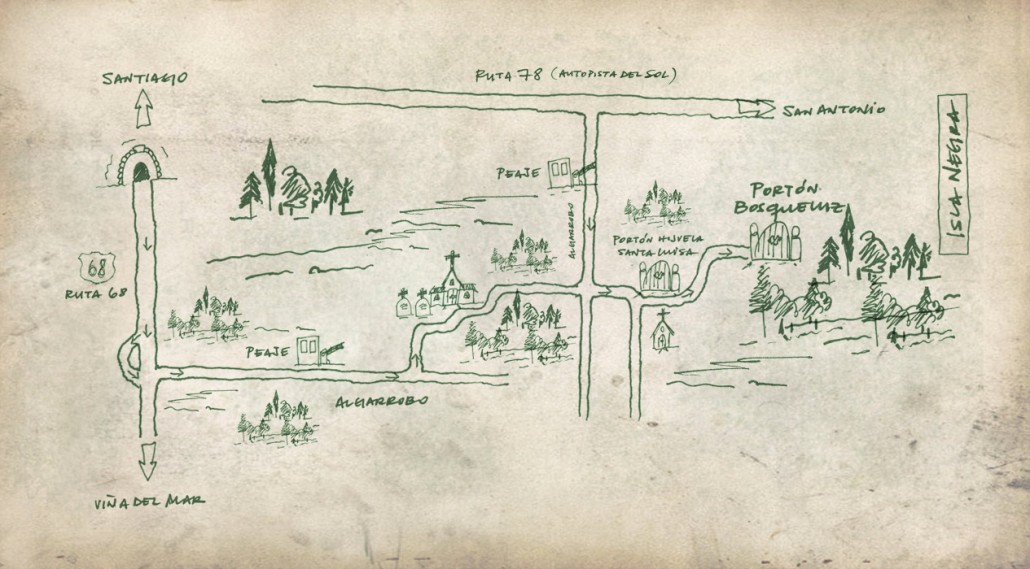 SANTIAGO
RUTA 78 (AUTOPISTA DEL SOL)
SAN ANTONIO
ISLA NEGRA
PEAJE
ALGARROBO
PORTÓN
BOSQUELUZ
PORTÓN HIJUELA
SANTA LUISA
68
RUTA 68
PEAJE
ALGARROBO
VIÑA DEL MAR